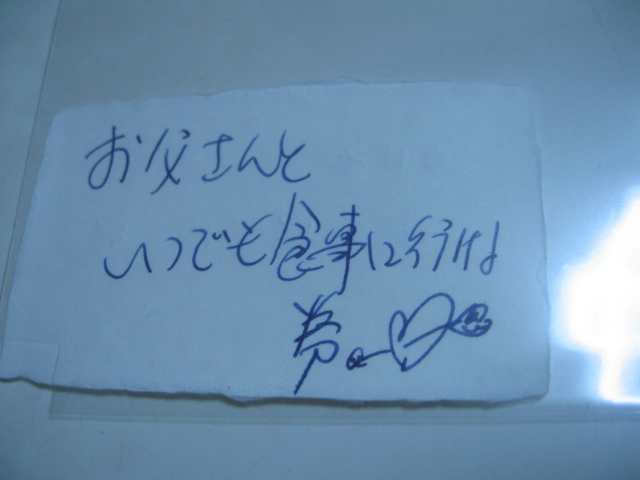 お父さんと
いつでも食事に行けよ
券